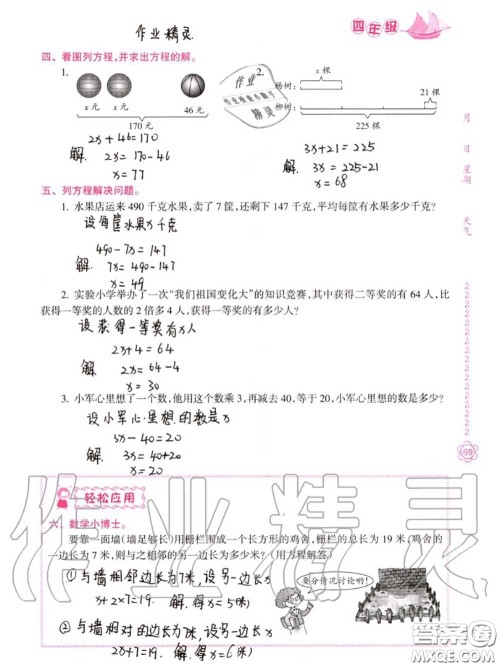 作业精灵
四年级
四、看图列方程,并求出方程的解。
1.
x元 x元 46元
170元
2x+46=170
解. 2x=170-46
x=77
2.
x棵
杨树:
21棵
柳树:
225棵
3x+21=225
解. 3x=225-21
x=68
作业
精灵
月
日
星期
天气
五、列方程解决问题。
1. 水果店运来490千克水果,卖了7筐,还剩下147千克,平均每筐有水果多少千克?
设每筐水果x千克
490-7x=147
解. 7x=147
x=49
2. 实验小学举办了一次“我们祖国变化大”的知识竞赛,其中获得二等奖的有64人,比
获得一等奖的人数的2倍多4人,获得一等奖的有多少人?
设获得一等奖有x人
2x+4=64
解. 2x=64-4
x=30
3. 小军心里想了一个数,他用这个数乘3,再减去40,等于20,小军心里想的数是多少?
设小军心里想的数是x
3x-40=20
解. 3x=40+20
x=20
69
作业精灵
轻松应用
六、数学小博士。
要靠一面墙(墙足够长)用栅栏围成一个长方形的鸡舍,栅栏的总长为19米,鸡舍的
一边长为7米,则与之相邻的另一边长为多少米?(用方程解答)
①与墙相邻边长为7米,设另一边长x
x+2×7=19. 解得x=5(米)
②与墙相对的边长为7米,设另一边长x
2x+7=19. 解得x=6(米)
要分情况讨论哟!
答案圈
MXQE.COM